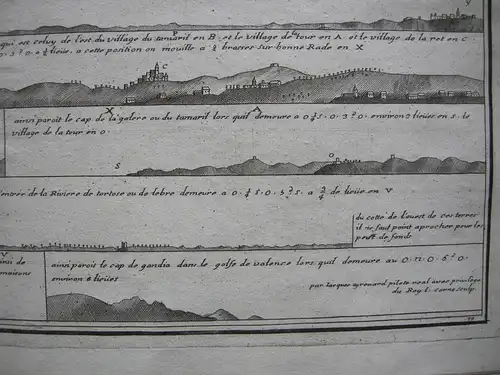 qui est celuy de l'est du village du tamarit en B, et le village de la tour en A, et le village de la ret en C
a cette position on mouille a 5 brasses sur bonne Rade en X
C
X
A
ainsi paroit le cap de la galere ou du tamarit lors quil demeure a 0 ¼ S. O. 3° O. environ 2 lieües en S. le
village de la tour en O.
S
O
entrée de la Riviere de tortose ou de lebre demeure a O. ¼ S. O. 3° S. a ¾ de lieüe en V
du cotte de l'ouest de ces terres
il ne faut point aprocher pour les
peu de fonds
V
maisons
ainsi paroit le cap de gandia dans le golfe de valence lors quil demeure au O. N. O. 5° O.
environ 6 lieües
par Jacques ayrouard pilote real avec privilege
du Roy L. corne sculp